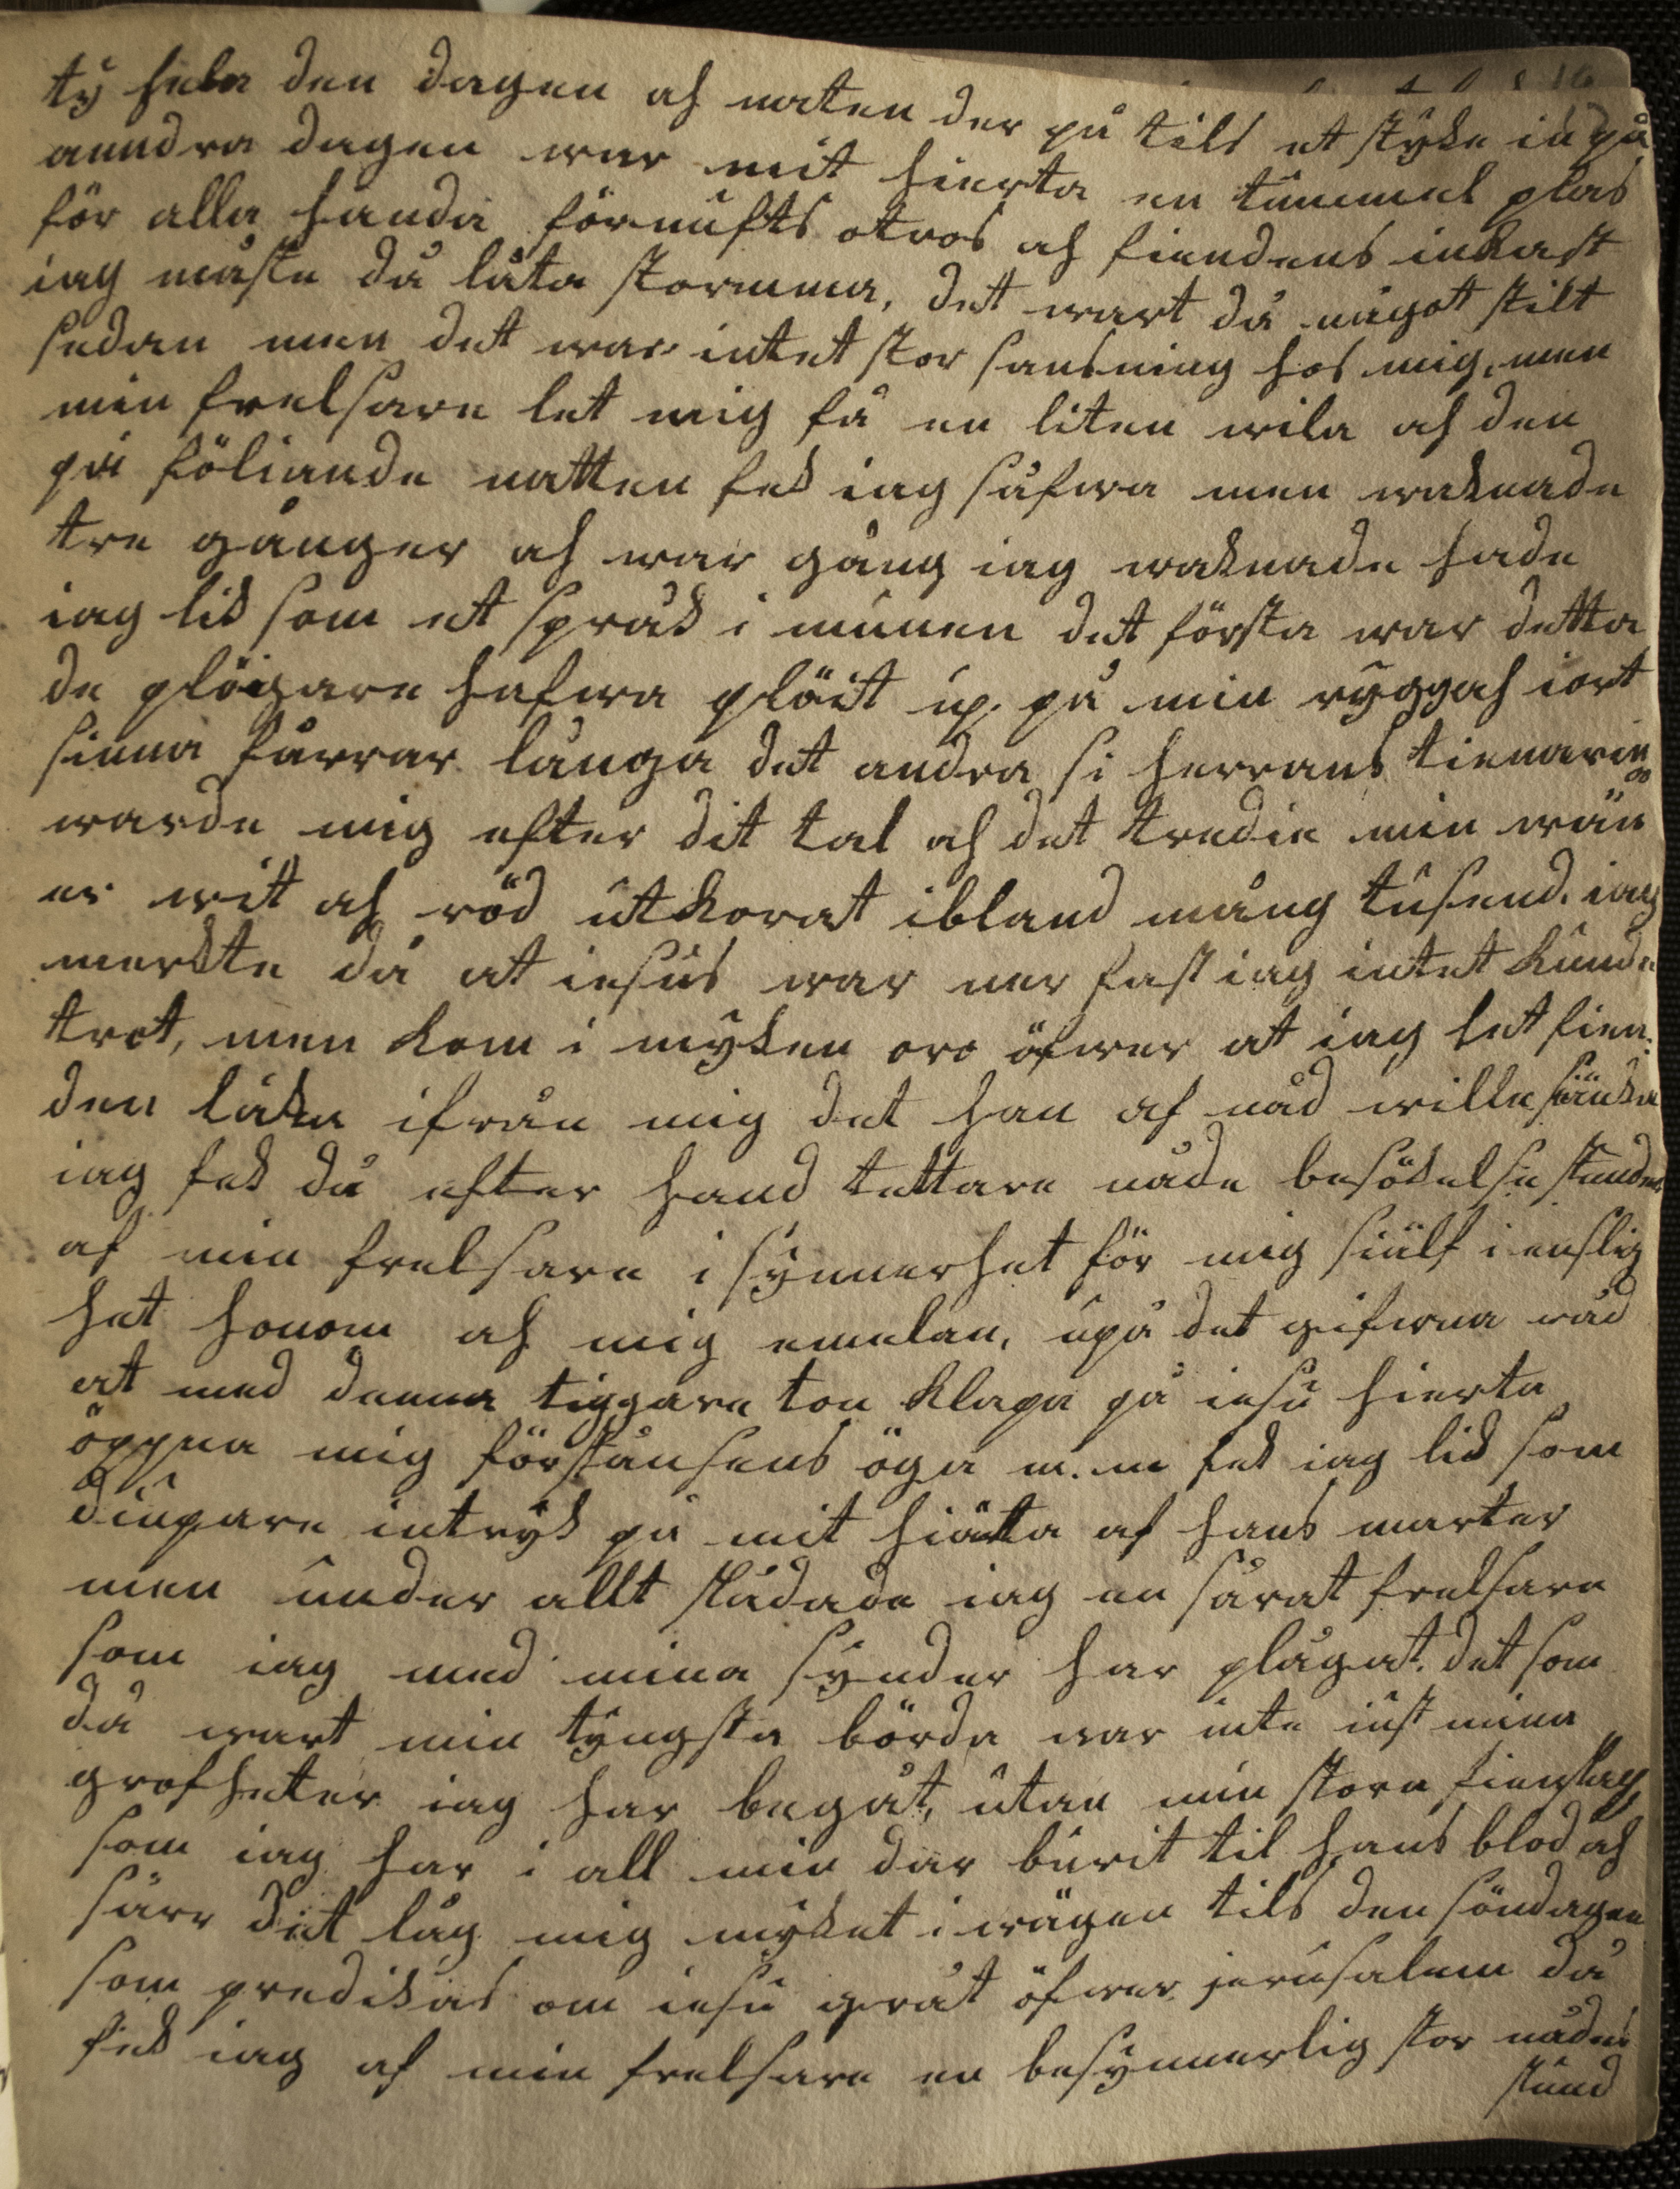 ty hela den dagen ah naten der på tils et styke in på
anndra dagen war mit hierta en tummel plas
för alla handa förnufts otros ah fiendens inkast
iag måste då låta stormma, dett wart då något stilt
sedan men det war intet stor sansning hos mig, men
min frelsare let mig få en liten wila ah den
på följande natten fek iag såfwa men waknade
tre gånger ah war gång iag waknade hade
iag lik som et språk i munen det första war detta
de plöigare hafwa plöit up på min ryggah iort
sinna fårrar långa det andra si herrans tienarin
warde mig efter dit tal ah det tredie min wän
er wit ah röd utkorat ibland mång tusend. iag
merkte då at iesus war ner fast iag intet kunde
trot, men kom i myken oro öfwer at iag let fien:
den läka ifrån mig det han af nåd wille skänka
iag fek då efter hand tettare nåde besökelse stunder
af min frelsare i synnerhet för mig siälf i enslig
het honom ah mig emelan, upå det gifwna råd
at med denna tiggare ton klapa på iesu hierta
öppna mig förstånsens öga m. m fek iag lik som
diupare intryk på mit hiärta af hans marter
men under allt skådade iag en sårat frelsare
som iag med mina synder har plågat. det som
då wart min tyngsta börda war inte iust mina
grofheter iag har begåt, utan min stora fienskap
som iag har i all min dar burit til hans blod ah
sårr det låg mig myket i wägen tils den söndagen
som predikas om iesu gråt öfwer jerusalem då
fik iag af min frelsare en besynnerlig stor nådes
stund